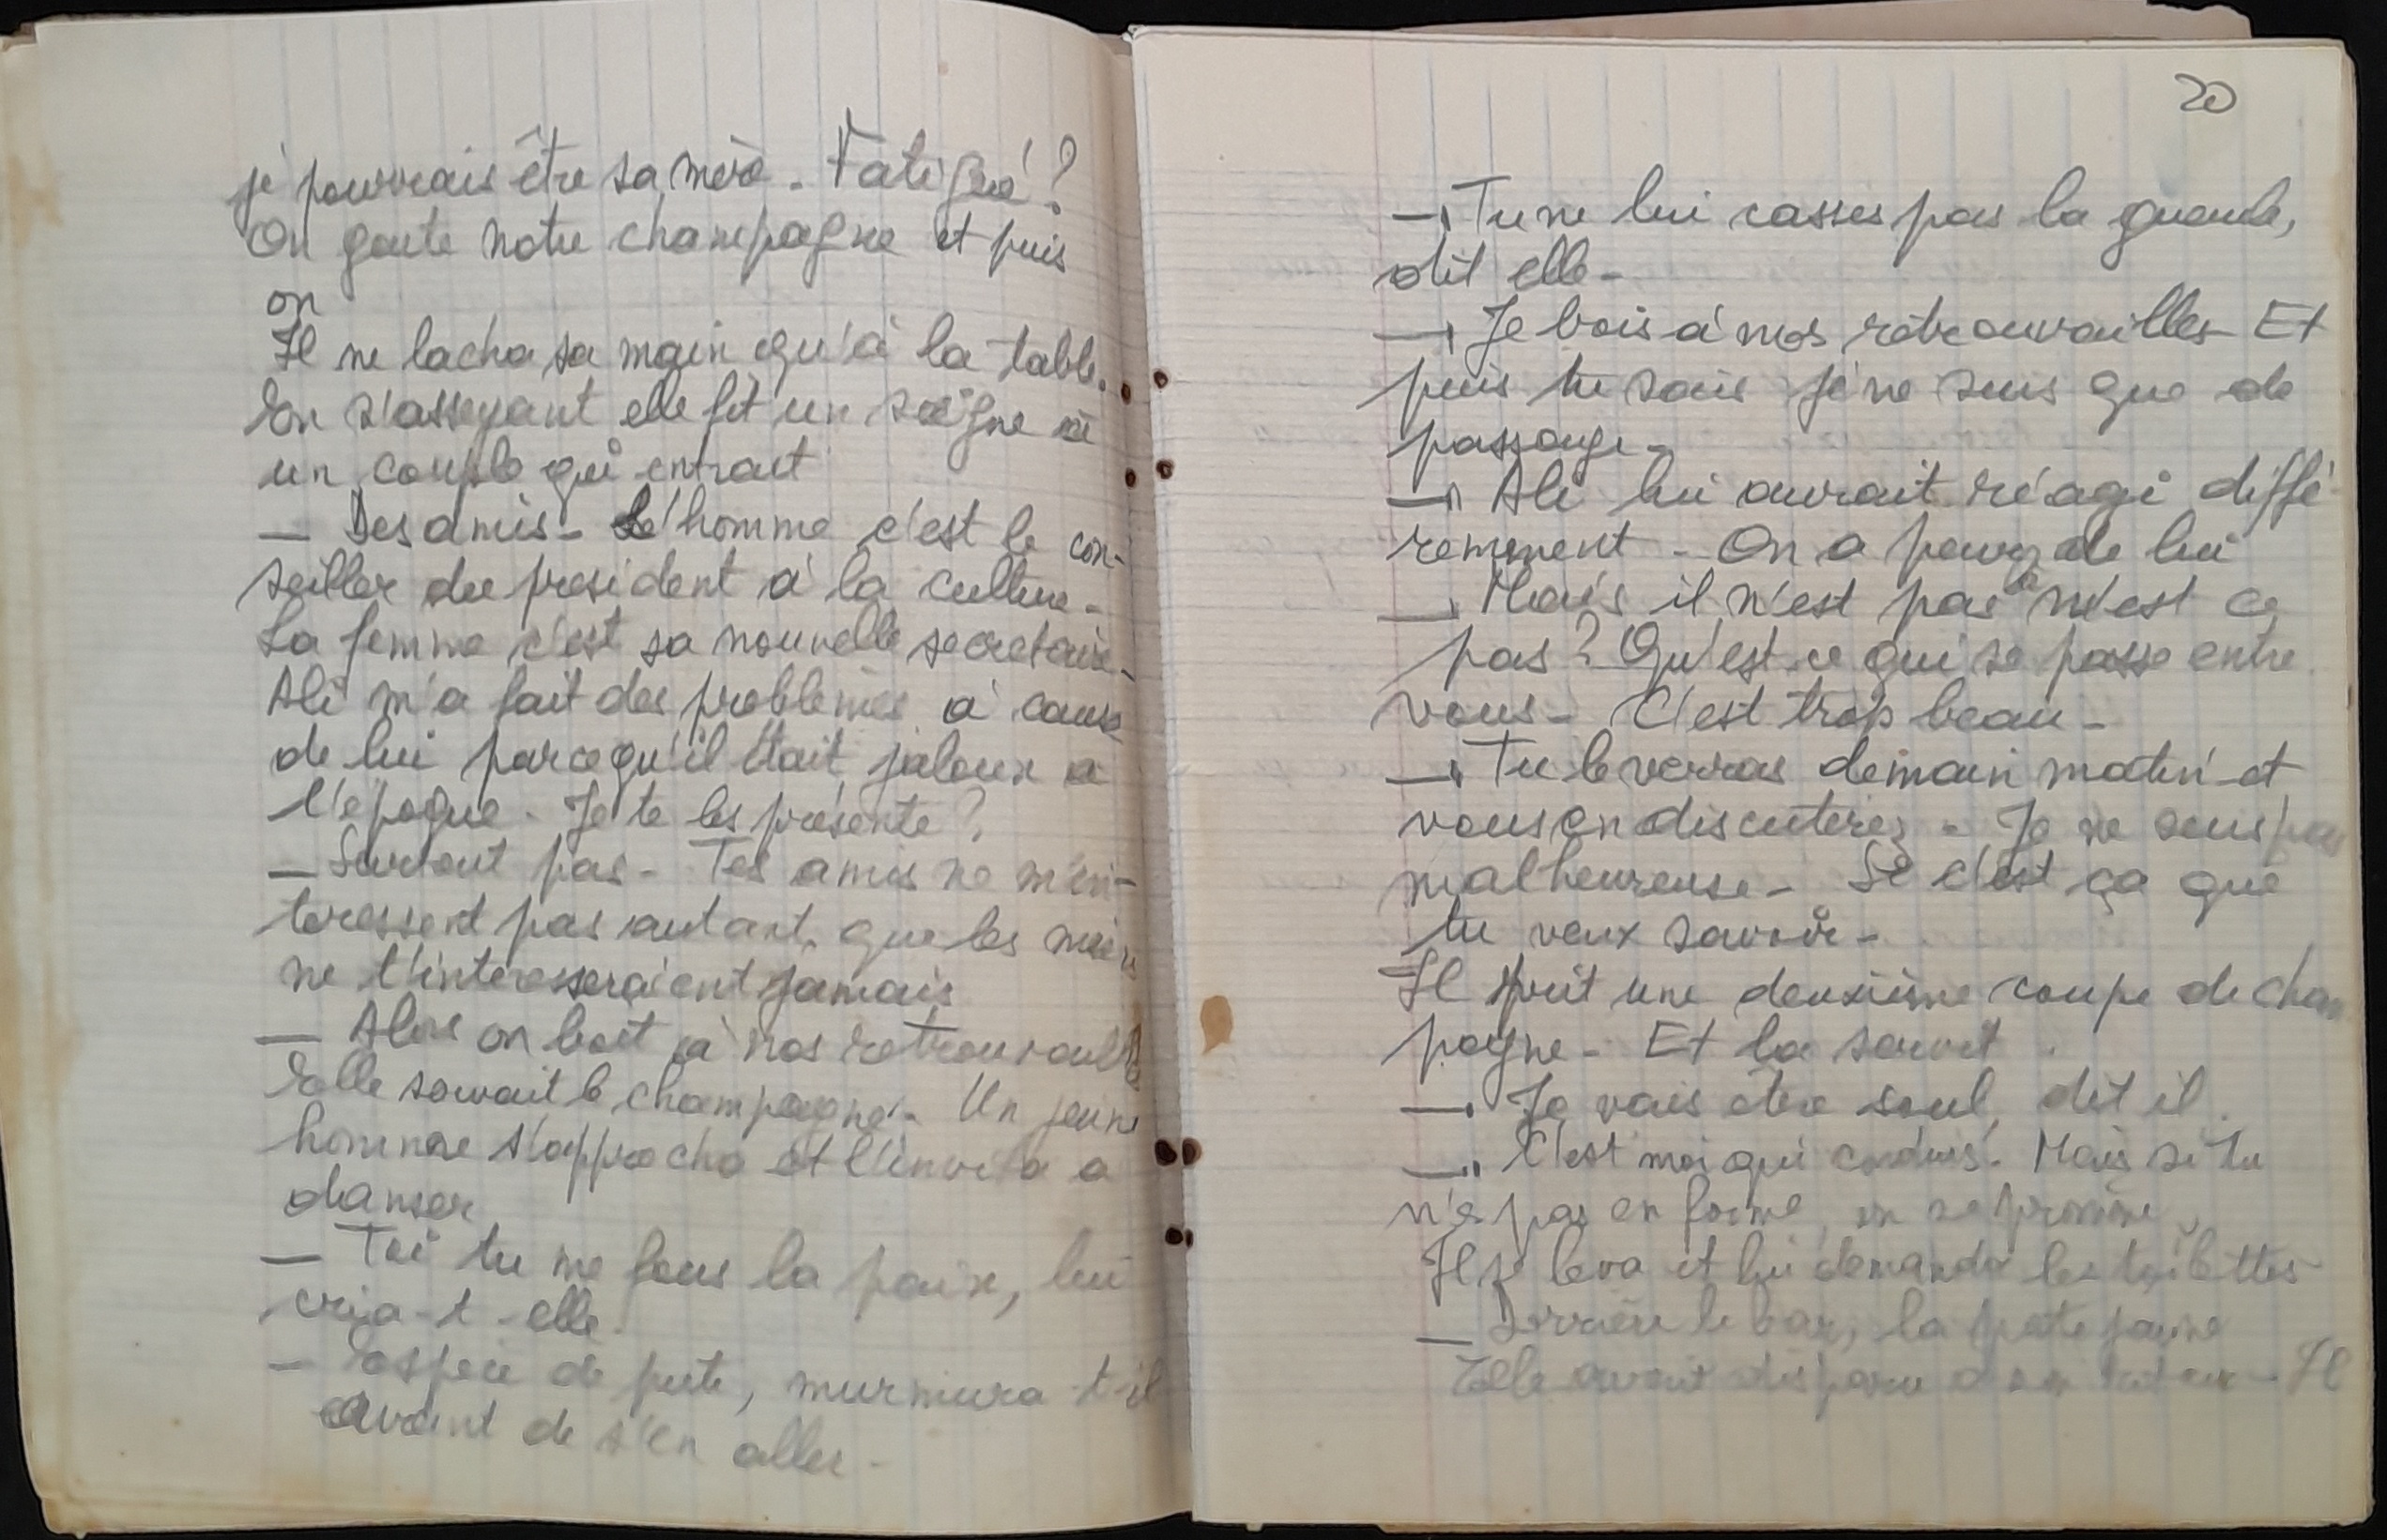 je pourrais être sa mère. Fatigué ?
On goute notre champagne et puis
on
Il ne lacha sa main qu'à la table.
En s'asseyant elle fit un signe à
un couple qui entrait
— Des amis - L'homme c'est le con-
seiller du president à la culture -
La femme c'est sa nouvelle secretaire -
Ali m'a fait des problèmes à cause
de lui parcequ'il était jaloux a
l'époque - Je te les présente ?
— Surtout pas - Tes amis ne m'in-
teressent pas autant, que les miens
ne t'interesseraient jamais
— Alors on boit à nos retrouvailles
Elle servait le champagne. Un jeune
homme s'approcha et l'invita a
danser
— Toi tu me fous la paix, lui
cria-t-elle.
— Espèce de pute, murmura-t-il
avant de s'en aller -
20
— Tu ne lui casses pas la gueule,
dit elle -
— Je bois à nos retrouvailles - Et
puis tu sais je ne suis que de
passage -
— Ali lui aurait réagi diffé-
remment - On a peur de lui
— Mais il n'est pas là n'est ce
pas ? Qu'est-ce qui se passe entre
vous - C'est trop beau -
— Tu le verras demain matin et
vous en discuterez - Je ne suis pas
malheureuse - Si c'est ça que
tu veux savoir -
Il prit une deuxième coupe de cham
pagne - Et la servit.
— Je vais être soul, dit il.
— C'est moi qui conduis. Mais si tu
n'es pas en forme, on se promène
Il se leva et lui demanda les toilettes
— Derrière le bar, la porte jaune
Elle avait disparu - Il